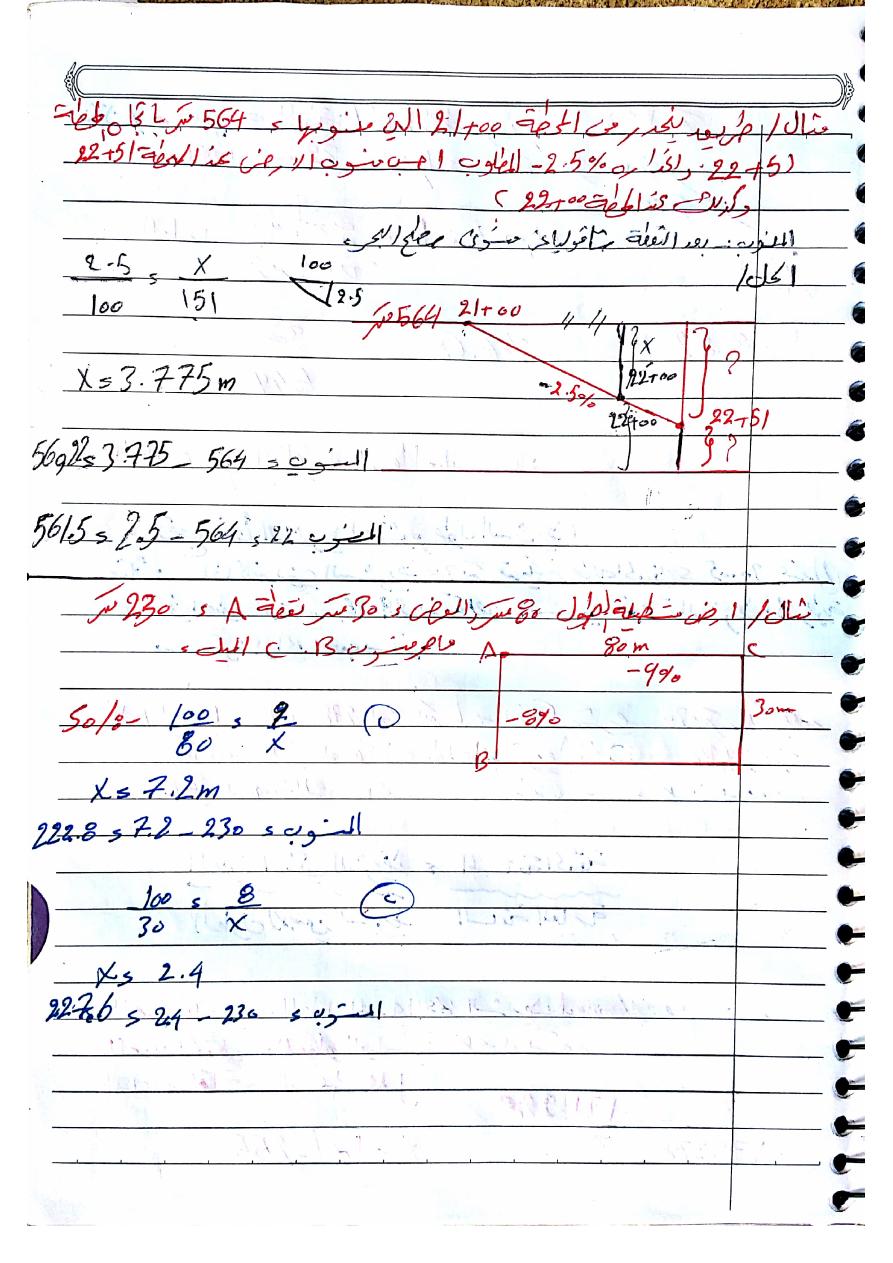 مثال/ طريق ينحدر من المحطة 21+00 التي منسوبها = 564 متر باتجاه محطة
(22+51) وانحداره 2.5%- المطلوب احسب منسوب الارض عند المحطة 22+51
وكذلك عند المحطة 22+00 )
المنسوب :- بعد النقطة شاقولياً عن مستوى سطح البحر
الحل/
2.5/100 = X/151
100
2.5
564 متر
21+00
// //
X
22+00
?
-2.5%
22+00
22+51
?
X = 3.775 m
المنسوب = 564 - 3.775 = 560.22
المنسوب 22 = 564 - 2.5 = 561.5
مثال/ ارض مستطيلة الطول 80 متر والعرض = 30 متر نقطة A = 230 متر
ماهو منسوب B. C الميل =
A
80m
C
-9%
-8%
30m
B
Sol:-
100/80 = 9/X
X = 7.2 m
المنسوب = 230 - 7.2 = 222.8
100/30 = 8/X
X = 2.4
المنسوب = 230 - 2.4 = 227.6